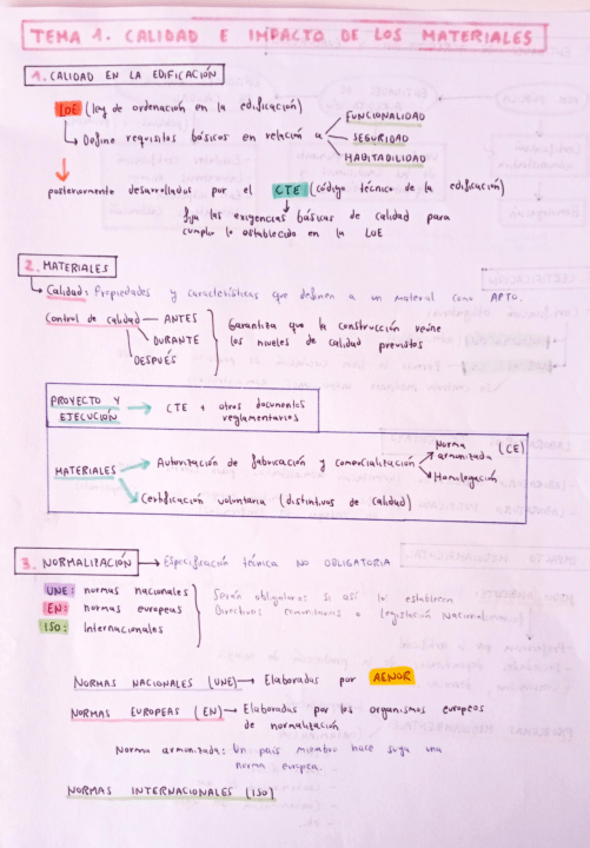 TEMA 1. CALIDAD E IMPACTO DE LOS MATERIALES
1. CALIDAD EN LA EDIFICACIÓN
LOE (ley de ordenación en la edificación)
Define requisitos básicos en relación a
FUNCIONALIDAD
SEGURIDAD
HABITABILIDAD
posteriormente desarrollados por el CTE (código técnico de la edificación)
fija las exigencias básicas de calidad para
cumplir lo establecido en la LOE
2. MATERIALES
Calidad: Propiedades y características que definen a un material como APTO.
Control de calidad — ANTES
DURANTE
DESPUÉS
Garantiza que la construcción reúne
los niveles de calidad previstos
PROYECTO Y
EJECUCIÓN
CTE + otros documentos
reglamentarios
MATERIALES
Autorización de fabricación y comercialización
Norma
armonizada (CE)
Homologación
Certificación voluntaria (distintivos de calidad)
3. NORMALIZACIÓN → Especificación técnica NO OBLIGATORIA
UNE: normas nacionales
EN: normas europeas
ISO: Internacionales
Serán obligatorias si así lo establecen
Directivas comunitarias o Legislación Nacional
NORMAS NACIONALES (UNE) → Elaboradas por AENOR
NORMAS EUROPEAS (EN) → Elaboradas por los organismos europeos
de normalización
Norma armonizada: Un país miembro hace suya una
norma europea.
NORMAS INTERNACIONALES (ISO)